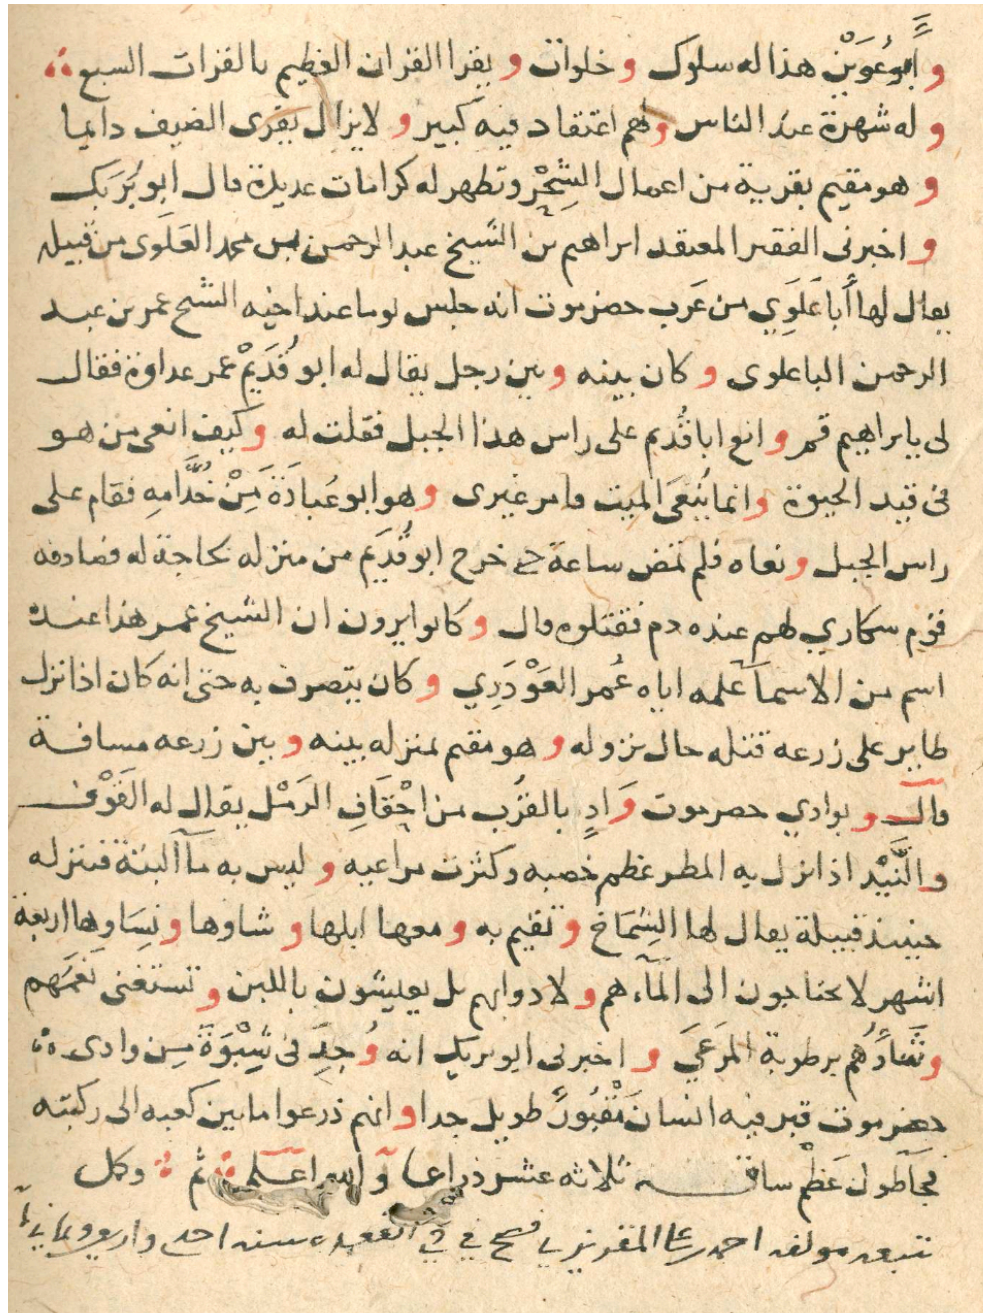 وأبو عُوَيْن هذا له سلوك وخلوات ويقرا القران العظيم بالقرات السبع
وله شهرة عند الناس ولهم اعتقاد فيه كبير ولا يزال يقرى الضيف دايما
وهو مقيم بقرية من اعمال الشِحْر وتظهر له كرامات عديدة قال ابو بُرَيك
واخبرنى الفقير المعتقد ابراهيم بن الشيخ عبد الرحمن بن محمد العَلَوى من قبيله
يقال لها أباعَلَوِي من عَرب حضرموت انه جلس يوما عند اخيه الشيخ عمر بن عبد
الرحمن الباعلوى وكان بينه وبين رجل يقال له ابو قُدَيمْ عمر عداوة فقال
لى يابراهيم قم وانع ابا قُديم على راس هذا الجبل فقلت له وكيف انعى من هو
فى قيد الحيوة وانما يُنعَى الميت فامر غيرى وهو ابو عُبادَةَ مِنْ خُدَّامِهِ فقام على
راس الجبل ونعاه فلم تمض ساعة حتى خرج ابو قُدَيم من منزله لحاجة له فصادفه
قوم سكارى لهم عنده دم فقتلوه قال وكانوا يرون ان الشيخ عمر هذا عنده
اسم من الاسمآ علمه اياه عُمر العَوْدَرِي وكان يتصرف به حتى انه كان اذا نزل
طاير على زرعه قتله حال نزوله وهو مقيم بمنزله بينه وبين زرعه مسافة
قال وبوادي حضرموت وَادٍ بالقُرب من احْقافِ الرَمْل يقال له
والنَّيْد اذا نزل به المطر عظم خصبه وكثرت مراعيه وليس به مآ البتة فتنزله
حينيذ قبيلة يقال لها السُماخ وتقيم به ومعها ابلها وشاوها ونِسَاوها اربعة
اشهر لا يحتاجون الى المآء هم ولا دوابهم بل يعيشون باللبن وتستغنى نَعَمهم
وشَاؤُهم برطوبة المَرعَي واخبرنى ابو بريك انه وُجِدَ فى شِبْوَةَ من وادى
حضرموت قبر فيه انسان مَقْبُورٌ طويل جدا وانهم ذرعوا ما بين كعبه الى ركبته
فجآ طول عَظْم ساقه ثلاثة عشر ذراعا والله اعلم ثم وكمل
تتبعه مولفه احمد بن على المقريزي فصح في ذي القعده سنه احدى واربعين وثماني ماية